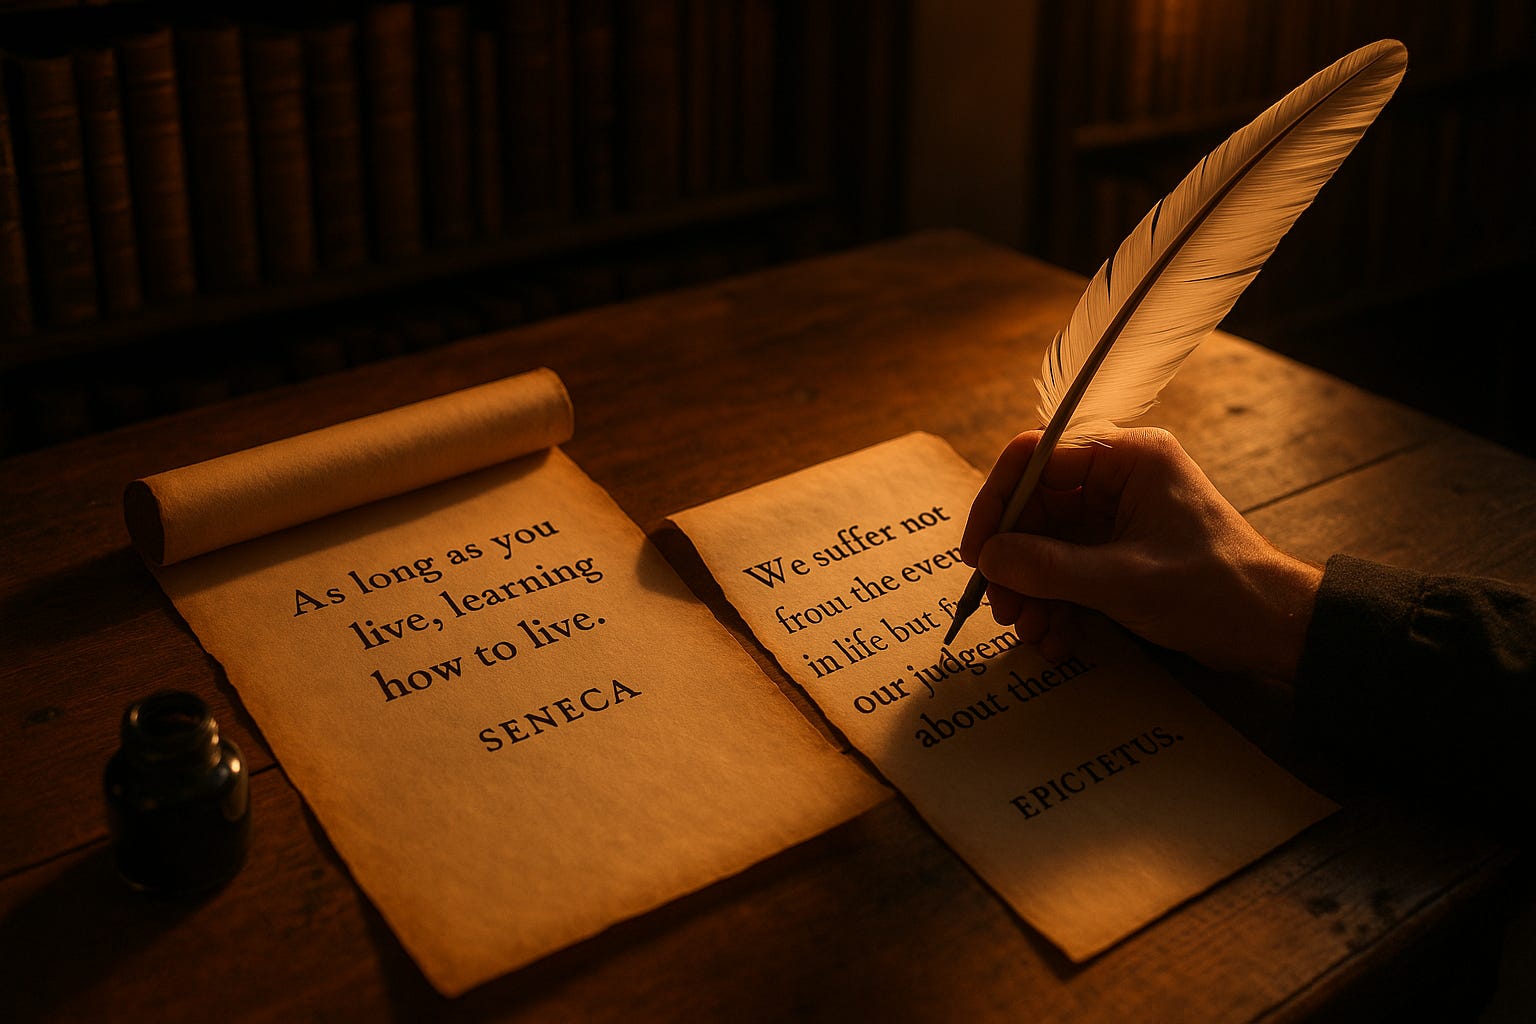 As long as you
live, learning
how to live.
SENECA
We suffer not
frouı the even
in life but
our judgem
about them.
EPICTETUS.